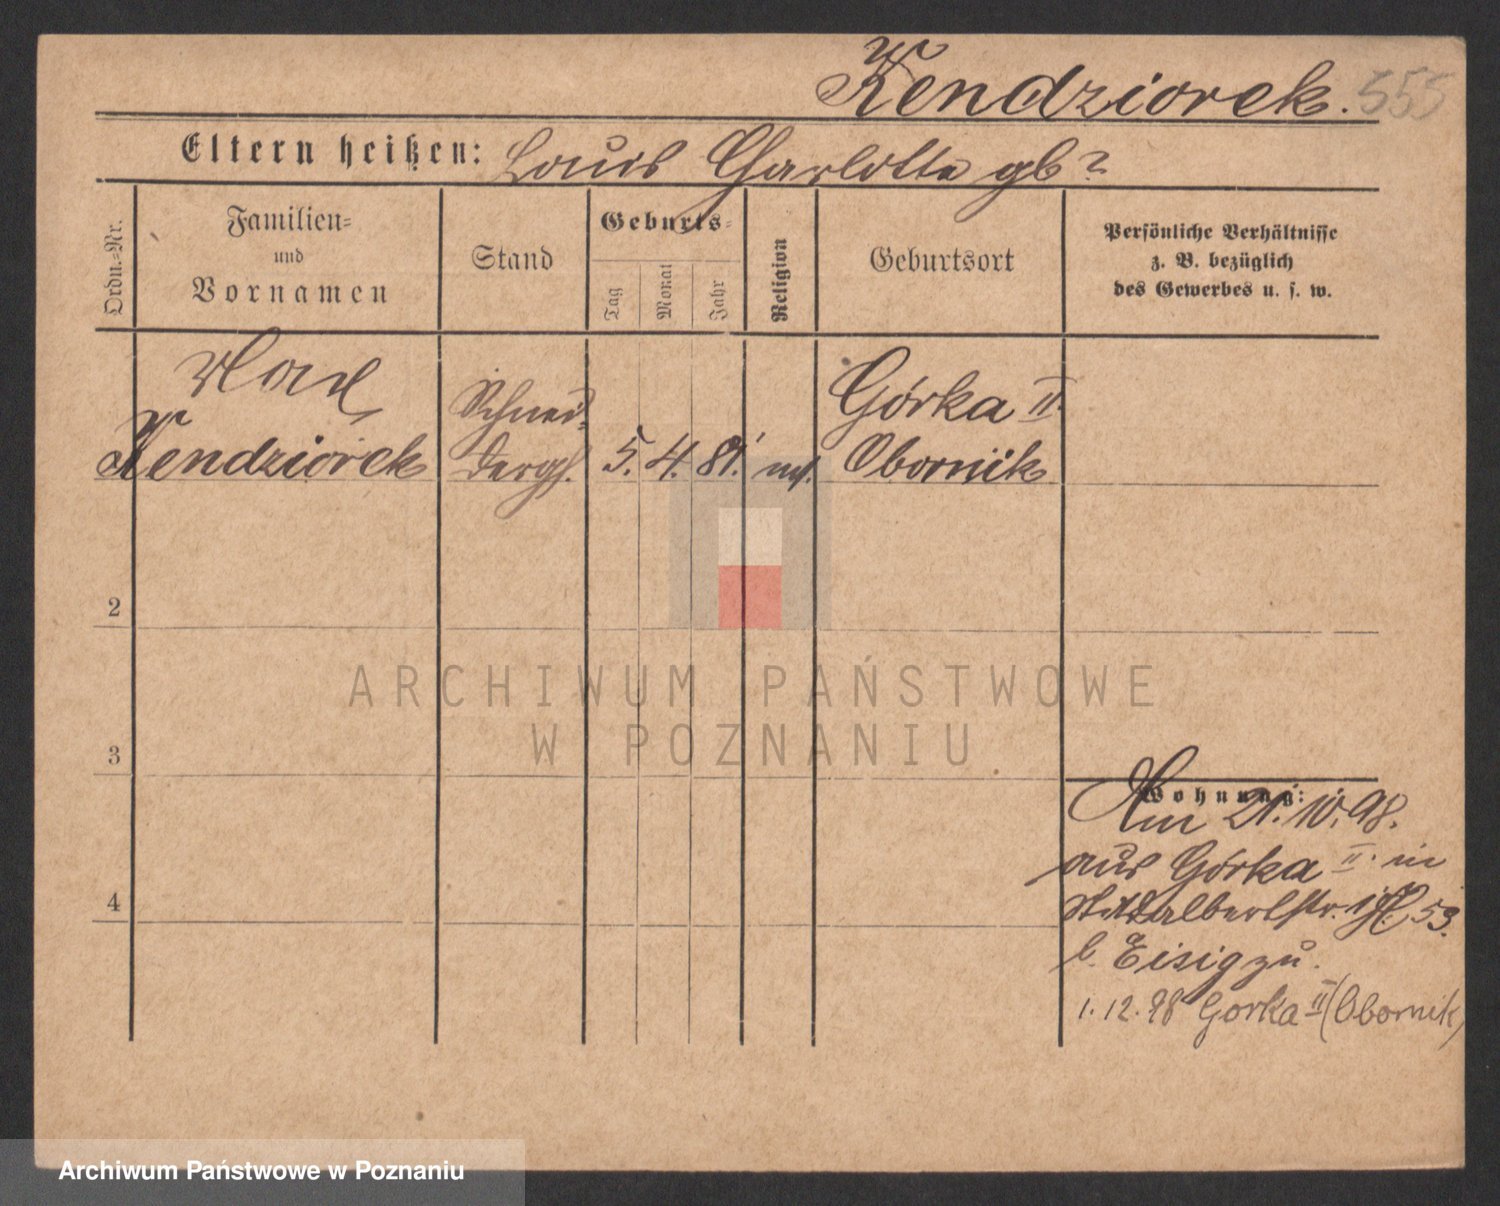 Kendziorek. 555
Eltern heißen: Louis Charlotte gb?
Ordn.-Nr.
Familien-
und
Vornamen
Stand
Geburts-
Tag
Monat
Jahr
Religion
Geburtsort
Persönliche Verhältnisse
z. B. bezüglich
des Gewerbes u. s. w.
Kendziorek
Schnei-
dergs.
5. 4. 81.
Górka II.
Obornik
2
3
4
ARCHIWUM PAŃSTWOWE
W POZNANIU
Wohnung:
Am 21.10.98.
aus Górka II. in
53.
b. Eisig zu.
1.12.98 Gorka II (Obornik)
Archiwum Państwowe w Poznaniu